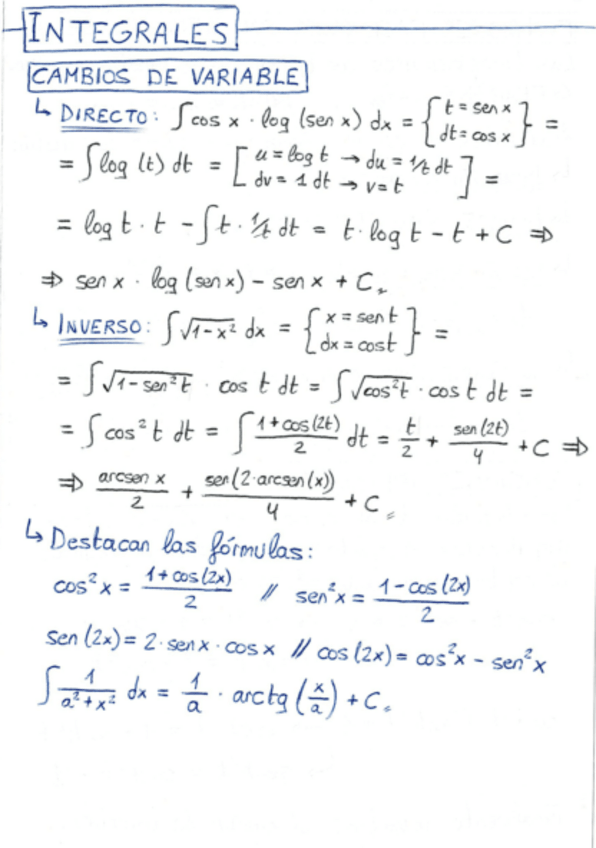 INTEGRALES
CAMBIOS DE VARIABLE
↳ DIRECTO: ∫cos x · log (sen x) dx = { t = sen x / dt = cos x } =
= ∫log (t) dt = [ u = log t → du = 1/t dt / dv = 1 dt → v = t ] =
= log t · t - ∫t · 1/t dt = t · log t - t + C ⇒
⇒ sen x · log (sen x) - sen x + C
↳ INVERSO: ∫√(1-x²) dx = { x = sen t / dx = cos t } =
= ∫√(1-sen²t) · cos t dt = ∫√(cos²t) · cos t dt =
= ∫cos² t dt = ∫ (1+cos(2t))/2 dt = t/2 + sen(2t)/4 + C ⇒
⇒ arcsen x/2 + sen(2·arcsen(x))/4 + C
↳ Destacan las fórmulas:
cos² x = (1+cos(2x))/2 // sen²x = (1-cos(2x))/2
sen (2x) = 2·sen x · cos x // cos (2x) = cos²x - sen²x
∫ 1/(a²+x²) dx = 1/a · arctg (x/a) + C